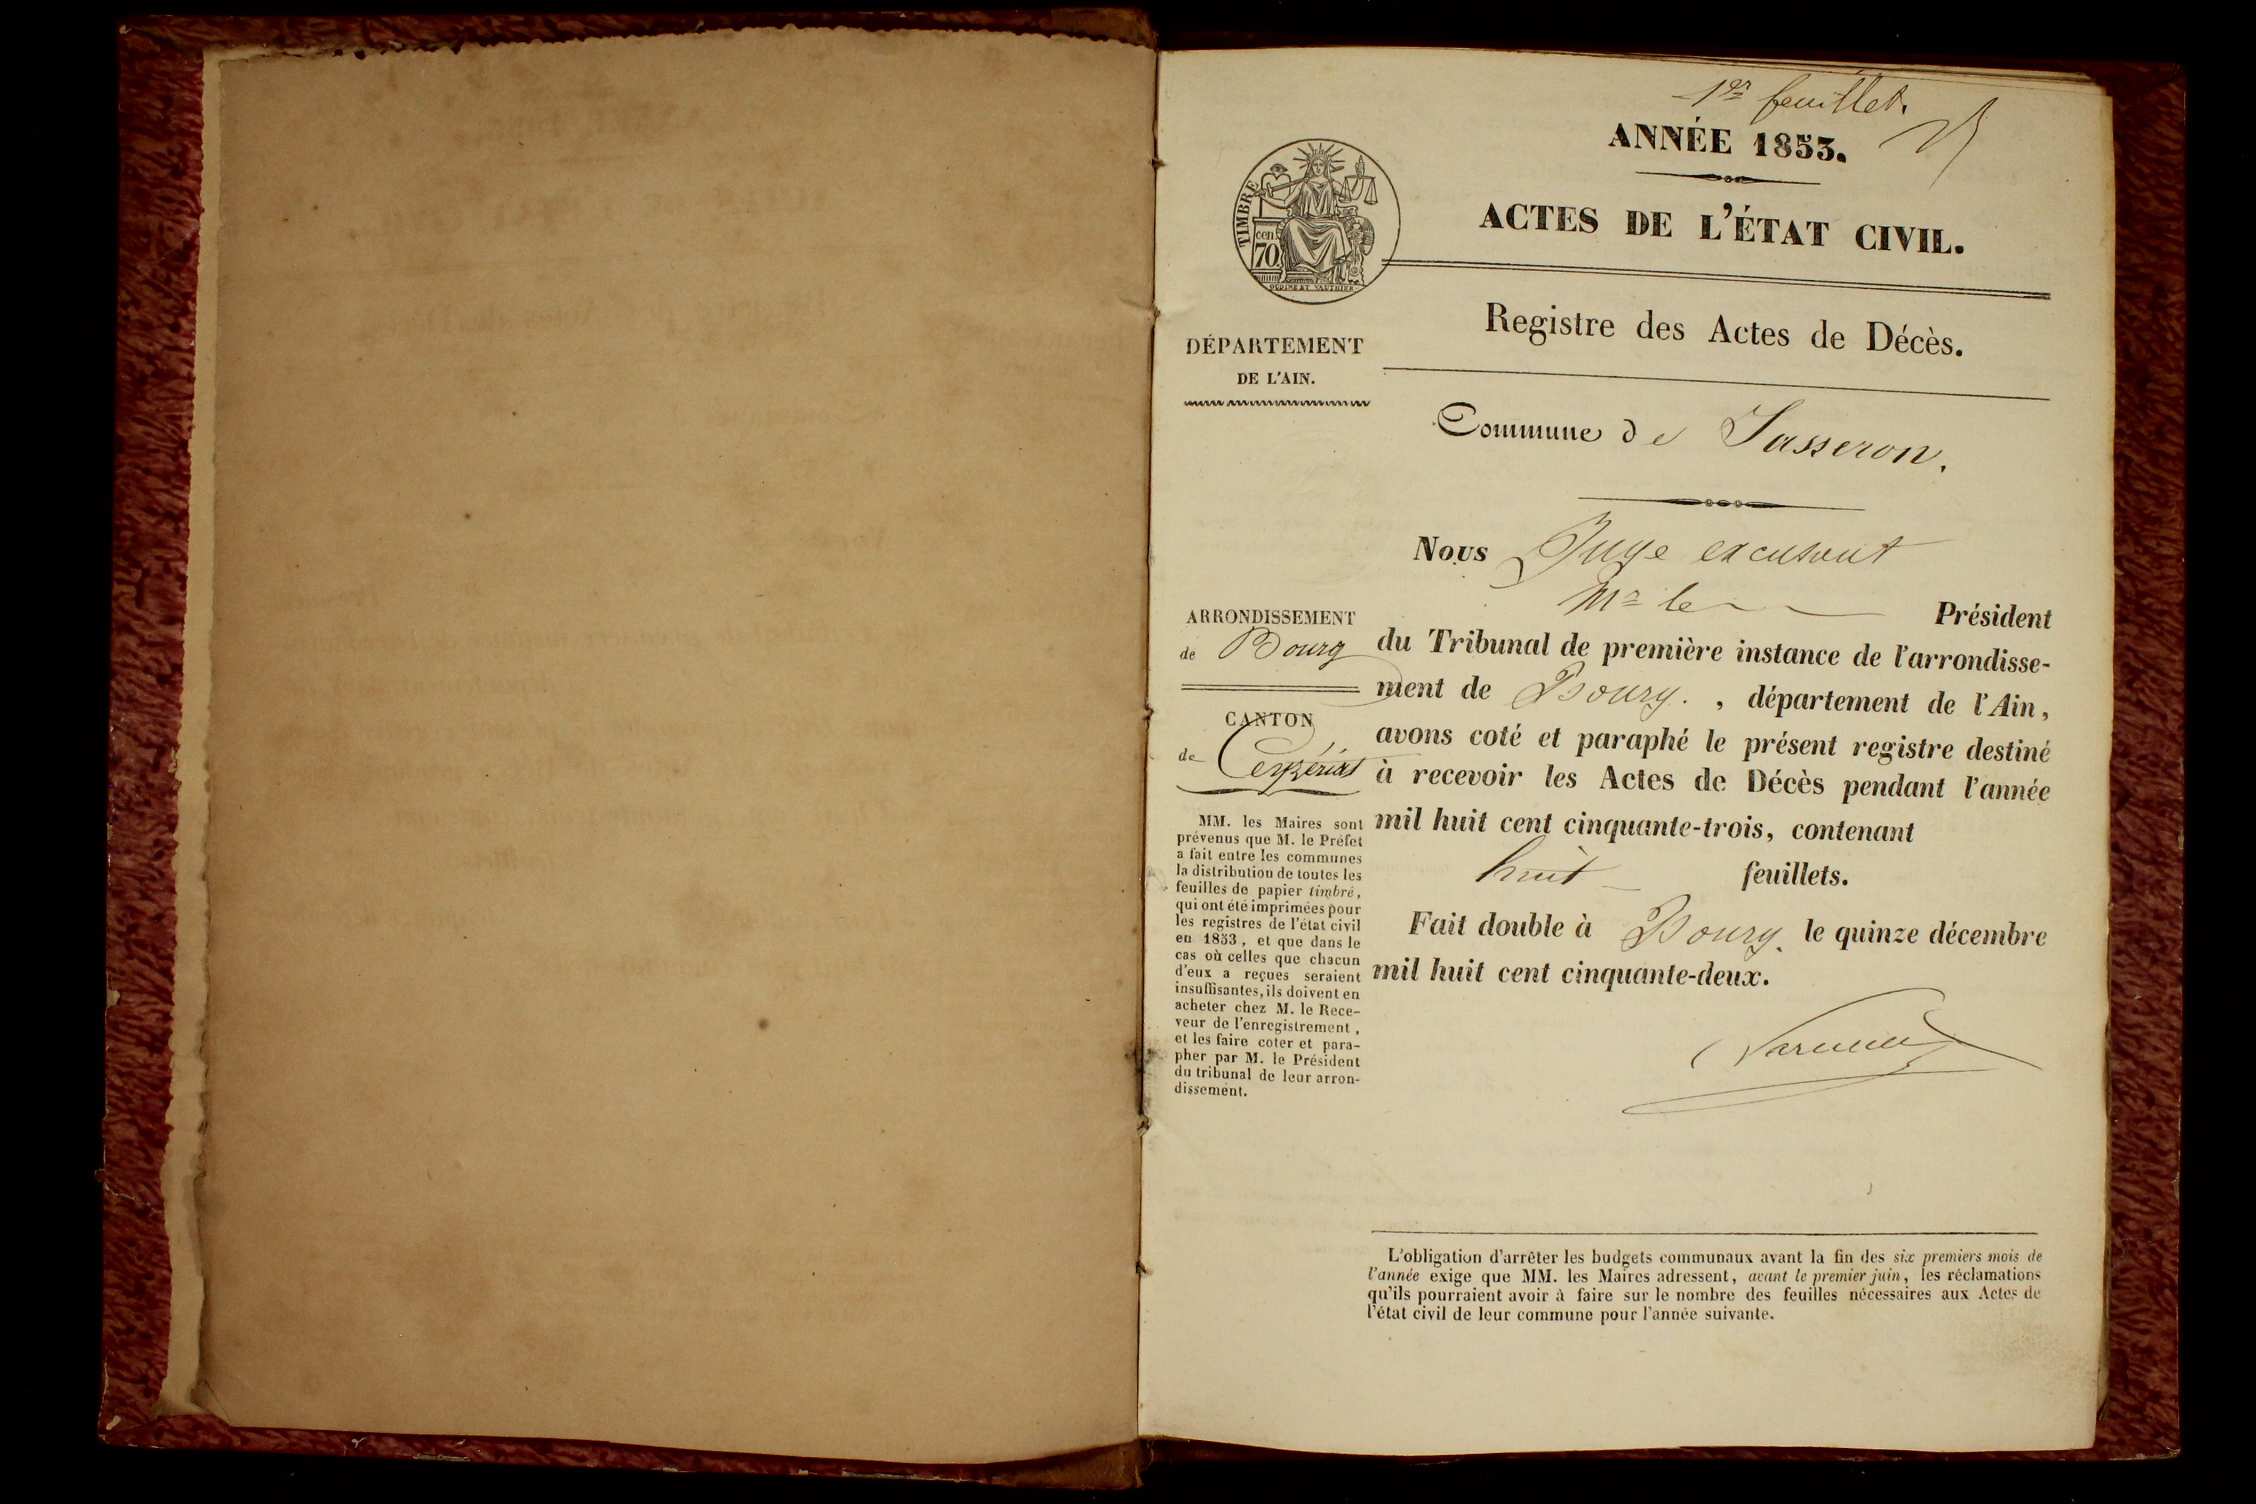 1er feuillet.
ANNÉE 1853.
ACTES DE L'ÉTAT CIVIL.
TIMBRE
cen.
70
OUDINE ET VAUTHIER
Registre des Actes de Décès.
DÉPARTEMENT
DE L'AIN.
Commune de Jasseron.
Nous Juge excusant
Mr le Président
du Tribunal de première instance de l'arrondisse-
ment de Bourg. , département de l'Ain,
avons coté et paraphé le présent registre destiné
à recevoir les Actes de Décès pendant l'année
mil huit cent cinquante-trois, contenant
huit feuillets.
Fait double à Bourg. le quinze décembre
mil huit cent cinquante-deux.
ARRONDISSEMENT
de Bourg
CANTON
de Ceyzériat
MM. les Maires sont
prévenus que M. le Préfet
a fait entre les communes
la distribution de toutes les
feuilles de papier timbré,
qui ont été imprimées pour
les registres de l'état civil
en 1853, et que dans le
cas où celles que chacun
d'eux a reçues seraient
insuffisantes, ils doivent en
acheter chez M. le Rece-
veur de l'enregistrement,
et les faire coter et para-
pher par M. le Président
du tribunal de leur arron-
dissement.
L'obligation d'arrêter les budgets communaux avant la fin des six premiers mois de
l'année exige que MM. les Maires adressent, avant le premier juin, les réclamations
qu'ils pourraient avoir à faire sur le nombre des feuilles nécessaires aux Actes de
l'état civil de leur commune pour l'année suivante.